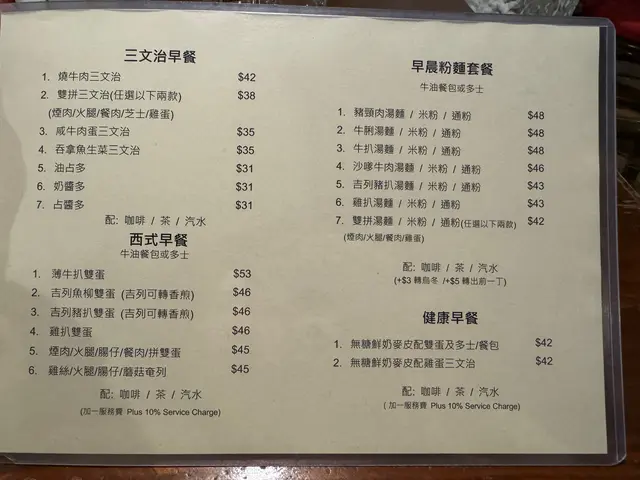 三文治早餐
1. 燒牛肉三文治 $42
2. 雙拼三文治(任選以下兩款) $38
(煙肉/火腿/餐肉/芝士/雞蛋)
3. 咸牛肉蛋三文治 $35
4. 吞拿魚生菜三文治 $35
5. 油占多 $31
6. 奶醬多 $31
7. 占醬多 $31
配: 咖啡 / 茶 / 汽水
西式早餐
牛油餐包或多士
1. 薄牛扒雙蛋 $53
2. 吉列魚柳雙蛋 (吉列可轉香煎) $46
3. 吉列豬扒雙蛋 (吉列可轉香煎) $46
4. 雞扒雙蛋 $46
5. 煙肉/火腿/腸仔/餐肉/拼雙蛋 $45
6. 雞絲/火腿/腸仔/蘑菇奄列 $45
配: 咖啡 / 茶 / 汽水
(加一服務費 Plus 10% Service Charge)
早晨粉麵套餐
牛油餐包或多士
1. 豬頸肉湯麵 / 米粉 / 通粉 $48
2. 牛脷湯麵 / 米粉 / 通粉 $48
3. 牛扒湯麵 / 米粉 / 通粉 $48
4. 沙嗲牛肉湯麵 / 米粉 / 通粉 $46
5. 吉列豬扒湯麵 / 米粉 / 通粉 $43
6. 雞扒湯麵 / 米粉 / 通粉 $43
7. 雙拼湯麵 / 米粉 / 通粉(任選以下兩款) $42
(煙肉/火腿/餐肉/雞蛋)
配: 咖啡 / 茶 / 汽水
(+$3 轉烏冬 /+$5 轉出前一丁)
健康早餐
1. 無糖鮮奶麥皮配雙蛋及多士/餐包 $42
2. 無糖鮮奶麥皮配雞蛋三文治 $42
配: 咖啡 / 茶 / 汽水
( 加一服務費 Plus 10% Service Charge)